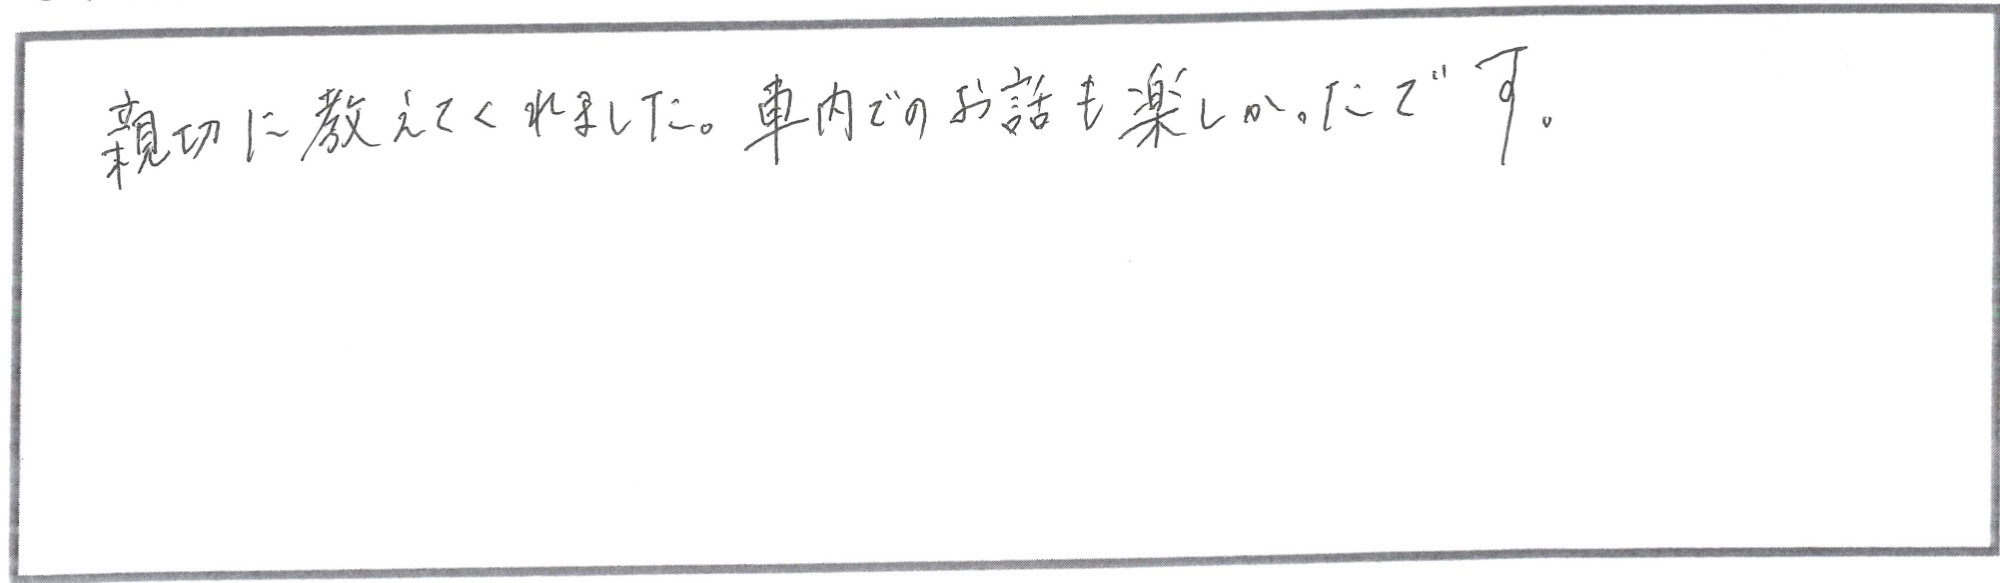 親切に教えてくれました。車内でのお話も楽しかったです。